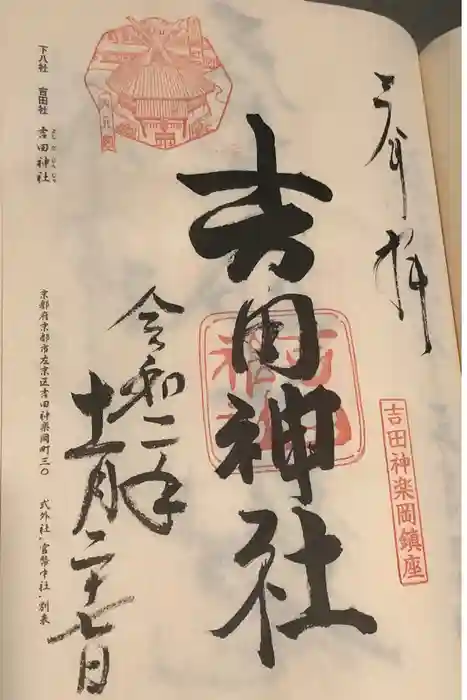 奉拝
吉田神楽岡鎮座
吉田神社
令和二年
十一月二十七日
下八社 官田社 吉田神社
よしだじんじゃ
京都府京都市左京区吉田神楽岡町三〇 式外社・官幣中社・別表